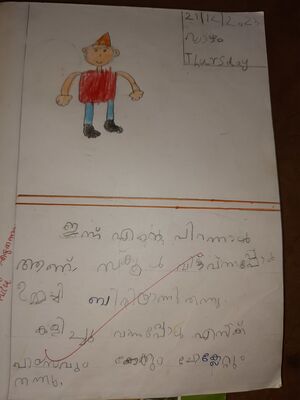 21/12/2023
വ്യാഴം
Thursday
ഇന്ന് എന്റെ പിറന്നാൾ
ആണ്. സ്കൂൾ വന്നപ്പോൾ
ഉമ്മച്ചി ബിരിയാണി തന്നു.
കളിച്ചു വന്നപ്പോൾ എനിക്ക്
പായസവും കേക്കും ചോക്ലേറ്റും
തന്നു.